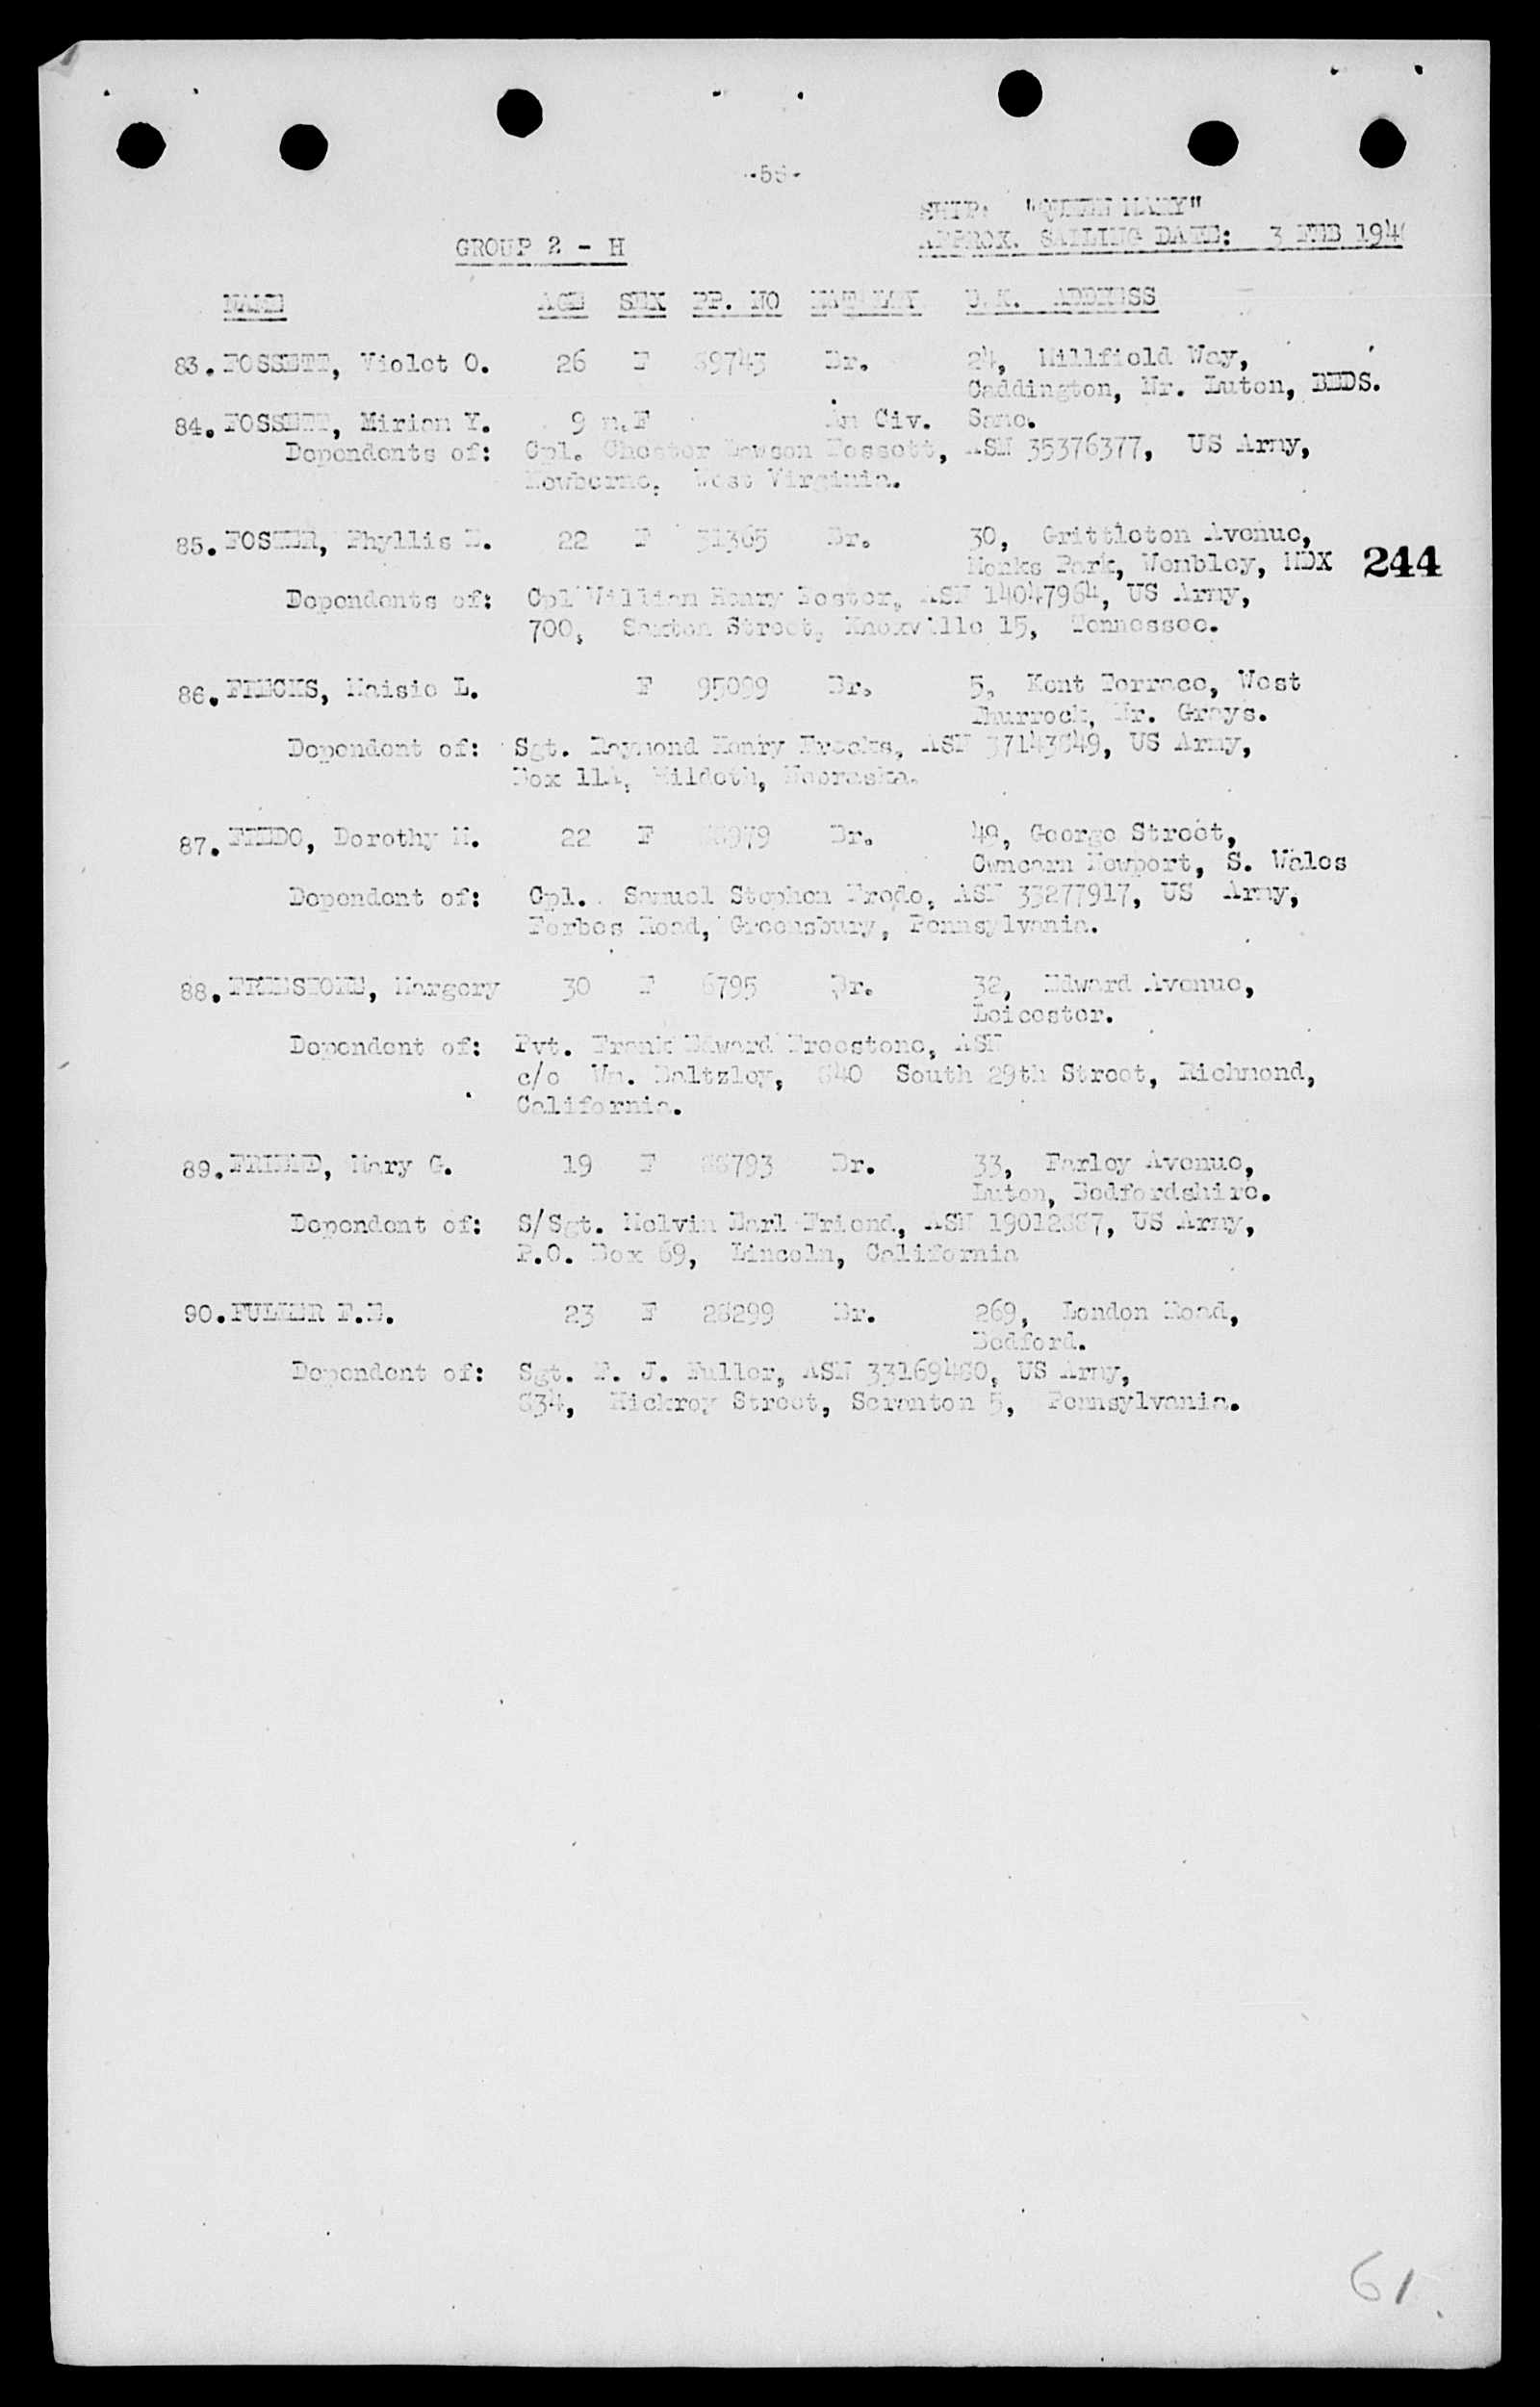 GROUP 2 - H
SHIP: "QUEEN MARY"
APPROX. SAILING DATE: 3 FEB 194
NAME AGE SEX PP. NO U.K. ADDRESS
83. FOSSETT, Violet O. 26 F 89743 Br. 24, Millfield Way,
Caddington, Nr. Luton, BEDS.
84. FOSSETT, Miriam Y. 9 m. F Am Civ. Same.
Dependents of: Cpl. Chester Dawson Fossett, ASN 35376377, US Army,
West Virginia.
85. FOSTER, Phyllis E. 22 F 31365 Br. 30, Grittleton Avenue,
Monks Park, Wembley, MDX
244
Dependents of: Cpl William Henry Foster, ASN 14047964, US Army,
700, Street, Knoxville 15, Tennessee.
86. FRECKS, Maisie L. F 95099 Br. 5, Kent Terrace, West
Thurrock, Nr. Grays.
Dependent of: Sgt. Raymond Henry Frecks, ASN 37143849, US Army,
Box 11A, Nebraska.
87. FREDO, Dorothy M. 22 F Br. 49, George Street,
Cwmcarn Newport, S. Wales
Dependent of: Cpl. Samuel Stephen Fredo, ASN 33277917, US Army,
Forbes Road, Greensbury, Pennsylvania.
88. FREESTONE, Margery 30 F 6795 Br. 32, Edward Avenue,
Leicester.
Dependent of: Pvt. Frank Edward Freestone, ASN
c/o Wm. Baltzley, 840 South 29th Street, Richmond,
California.
89. FRIEND, Mary G. 19 F 88793 Br. 33, Farley Avenue,
Luton, Bedfordshire.
Dependent of: S/Sgt. Melvin Earl Friend, ASN 19012887, US Army,
P.O. Box 69, Lincoln, California
90. FULLER F.E. 23 F 28299 Br. 269, London Road,
Bedford.
Dependent of: Sgt. F. J. Fuller, ASN 33169480, US Army,
834, Hickroy Street, Scranton 5, Pennsylvania.
61